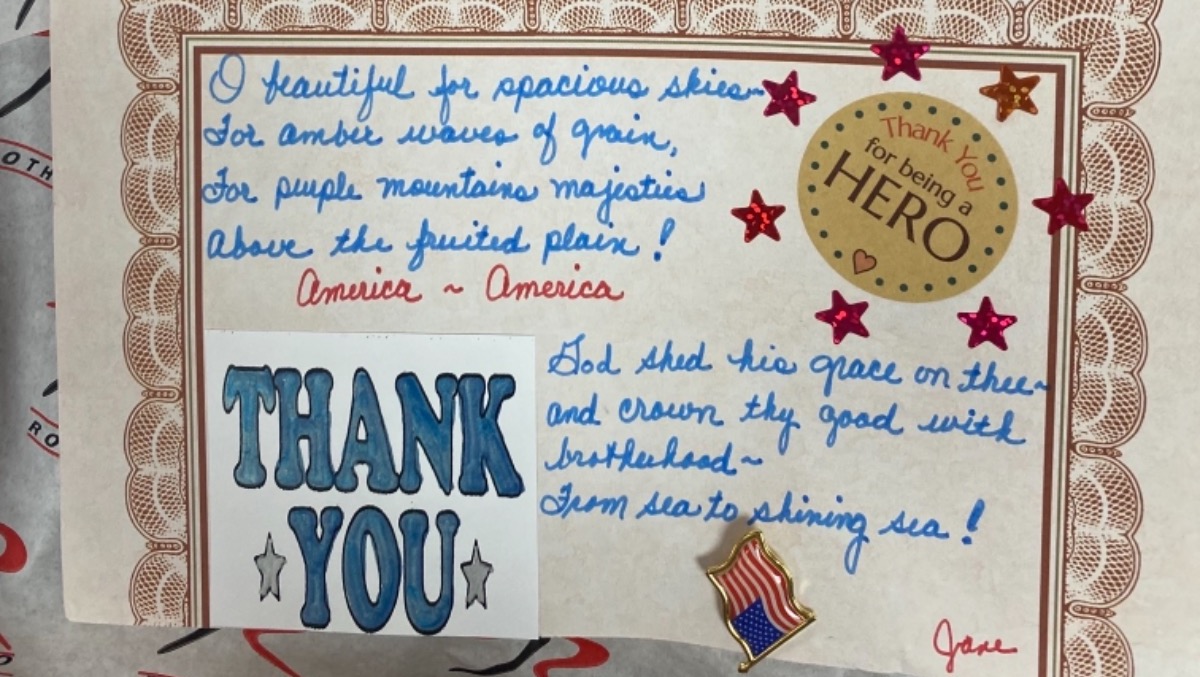 O beautiful for spacious skies~
For amber waves of grain,
For purple mountains majesties
Above the fruited plain!
America ~ America
Thank You
for being a
HERO
THANK
YOU
God shed his grace on thee~
and crown thy good with
brotherhood~
From sea to shining sea!
Jane
OTH
RO